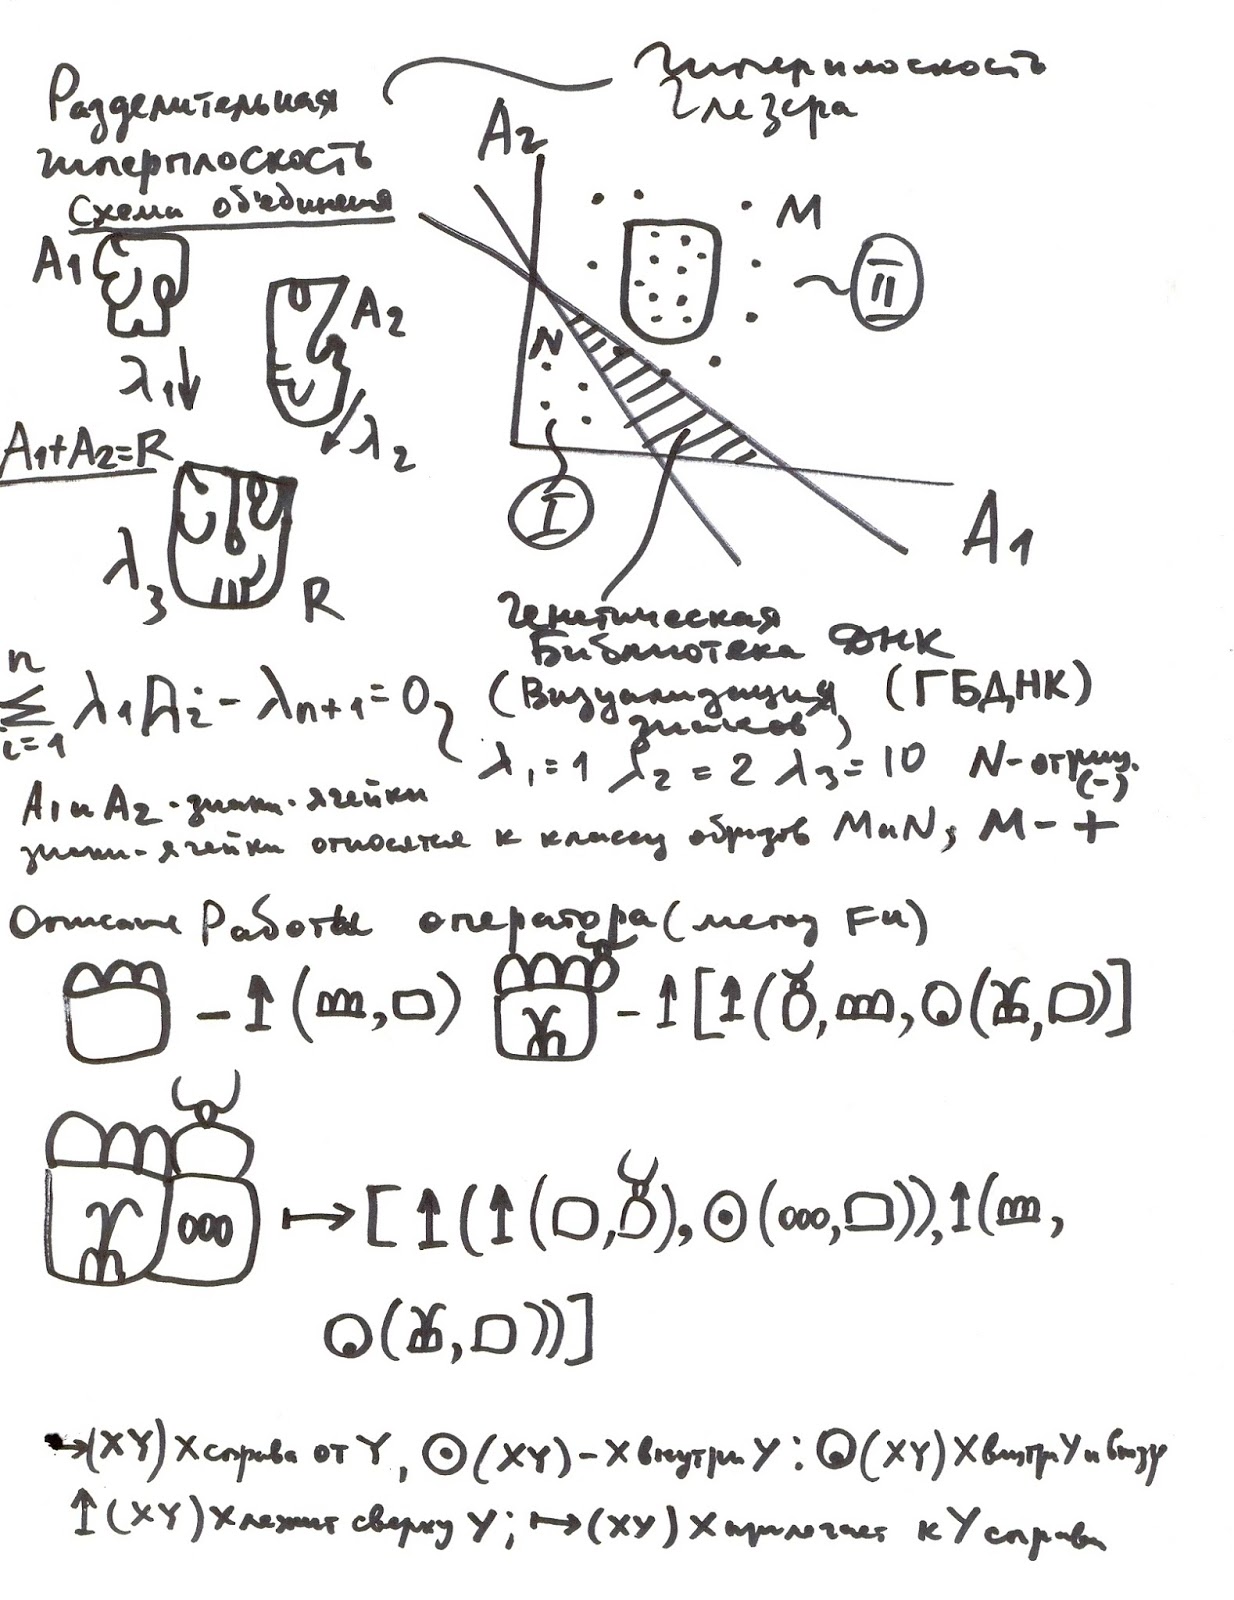 Разделительная
гиперплоскость
Схема объединения
Гиперплоскость
Глезера
A2
M
A1
A2
II
N
λ1
λ2
A1+A2=R
I
A1
λ3
R
Генетическая
Библиотека ДНК
(Визуализация (ГБДНК)
знаков)
n
∑ λ1Ai - λn+1 = 0
i=1
λ1 = 1 λ2 = 2 λ3 = 10 N - отриц.
(-)
A1 и A2 - знаки - ячейки
знаки - ячейки относятся к классу образов M и N, M - +
Описание Работы оператора (метод Fu)
- ↑( , ) - ↑[↑( , , ( , )]
↦ [↑(↑( , ), ⊙(ooo, )), ↑( ,
( , ))]
→(XY) X справа от Y, ⊙(XY) - X внутри Y : (XY) X внутри Y и внизу
↑(XY) X лежит сверху Y; ↦(XY) X прилегает к Y справа